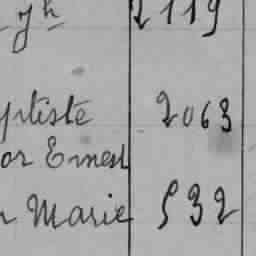 yh 2119
ptiste 2063
or Ernest
n Marie 532